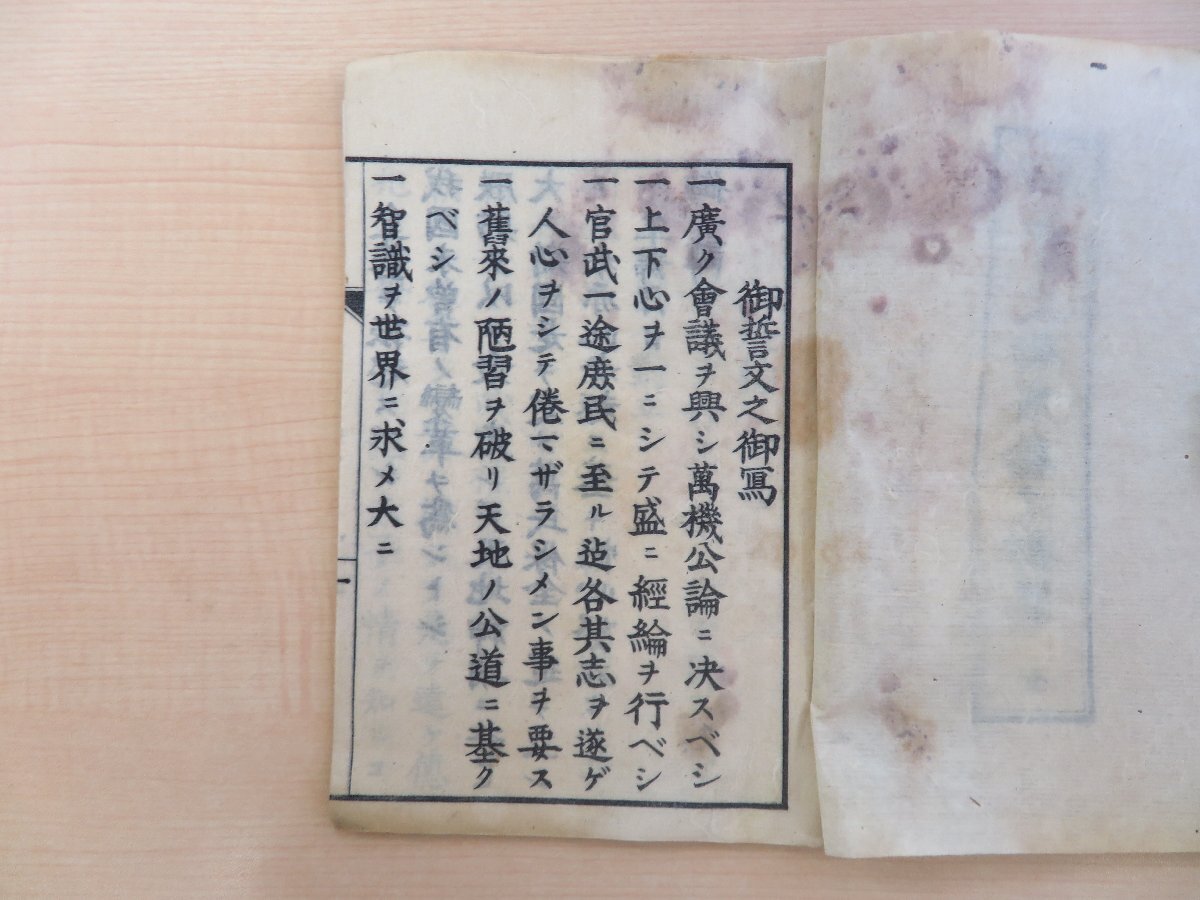 御誓文之御寫
一廣ク會議ヲ興シ萬機公論ニ决スベシ
一上下心ヲ一ニシテ盛ニ經綸ヲ行ベシ
一官武一途庶民ニ至ル迠各其志ヲ遂ゲ
人心ヲシテ倦マザラシメン事ヲ要ス
一舊來ノ陋習ヲ破リ天地ノ公道ニ基ク
ベシ
一智識ヲ世界ニ求メ大ニ
一